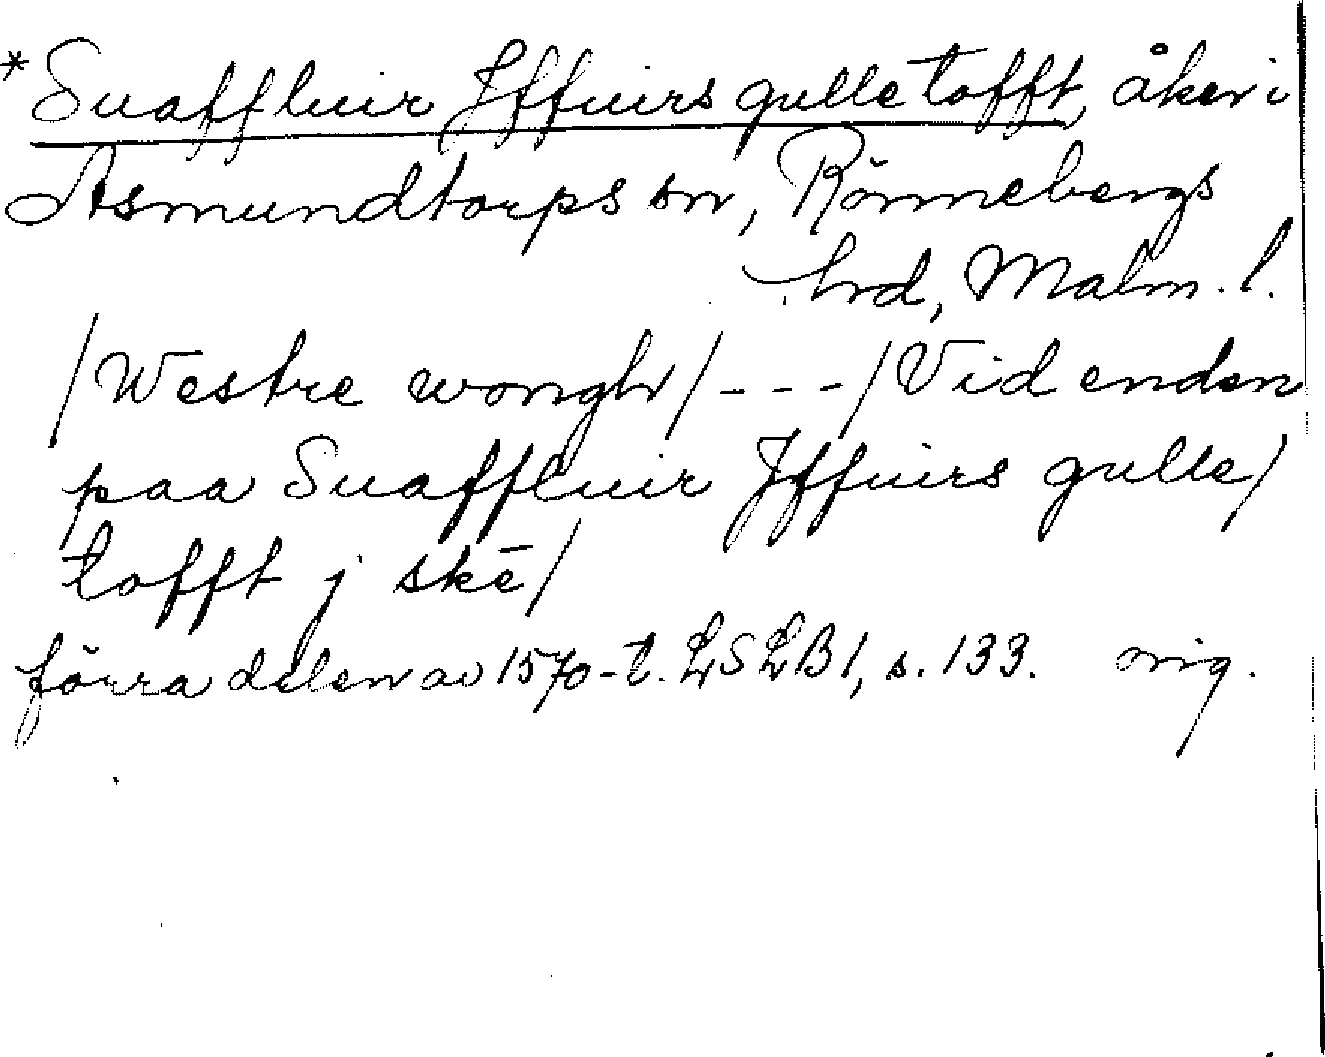 *Suaffluir Jffuirs gulle tofft, åker i
Asmundtorps sn, Rönnebergs
hd, Malm. l.
/Westre wongh/---/Vid enden
paa Suaffluir Jffuirs gulle/
tofft j skē/
förra delen av 1570-t. LSLB1, s. 133. orig.